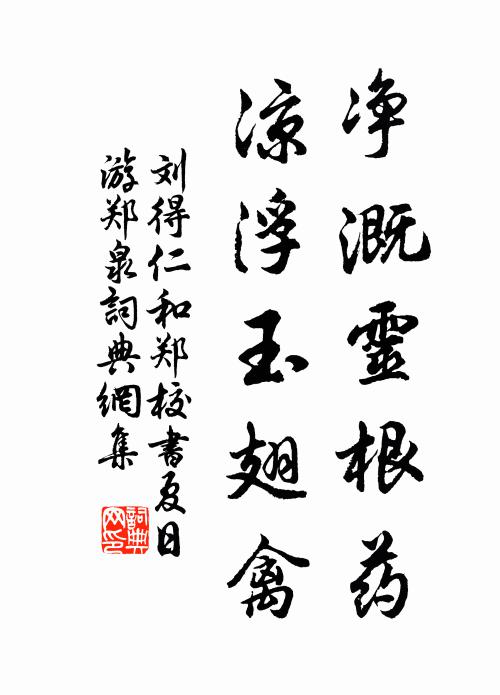 净溉靈根药
凉浮玉翅禽
刘得仁和郑校書夏日
游郑泉詞典網集
詞典网印